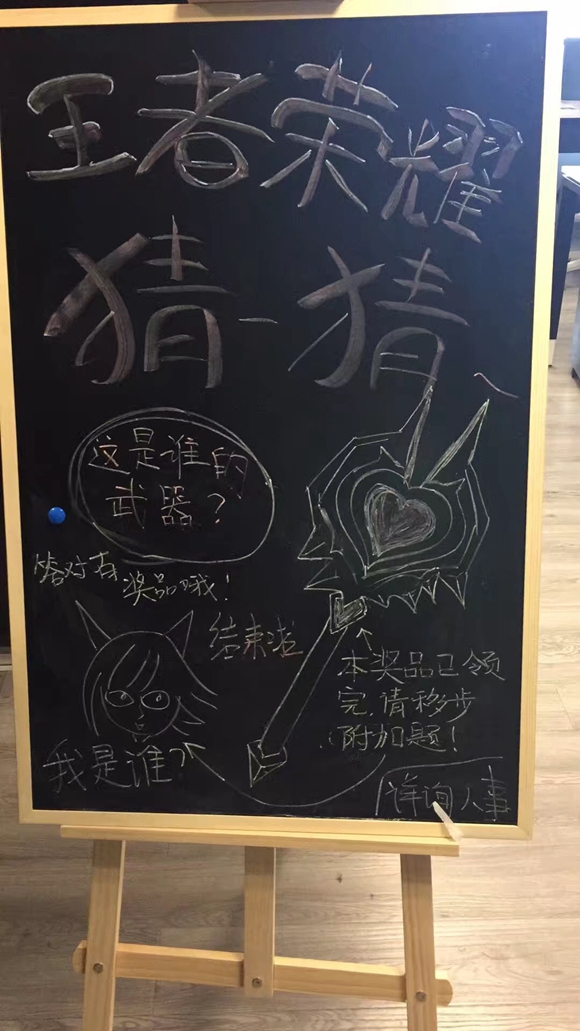 王者荣耀
猜一猜
这是谁的
武器？
答对有奖品哦！
结束啦
本奖品已领
完，请移步
附加题！
我是谁？
详询人事